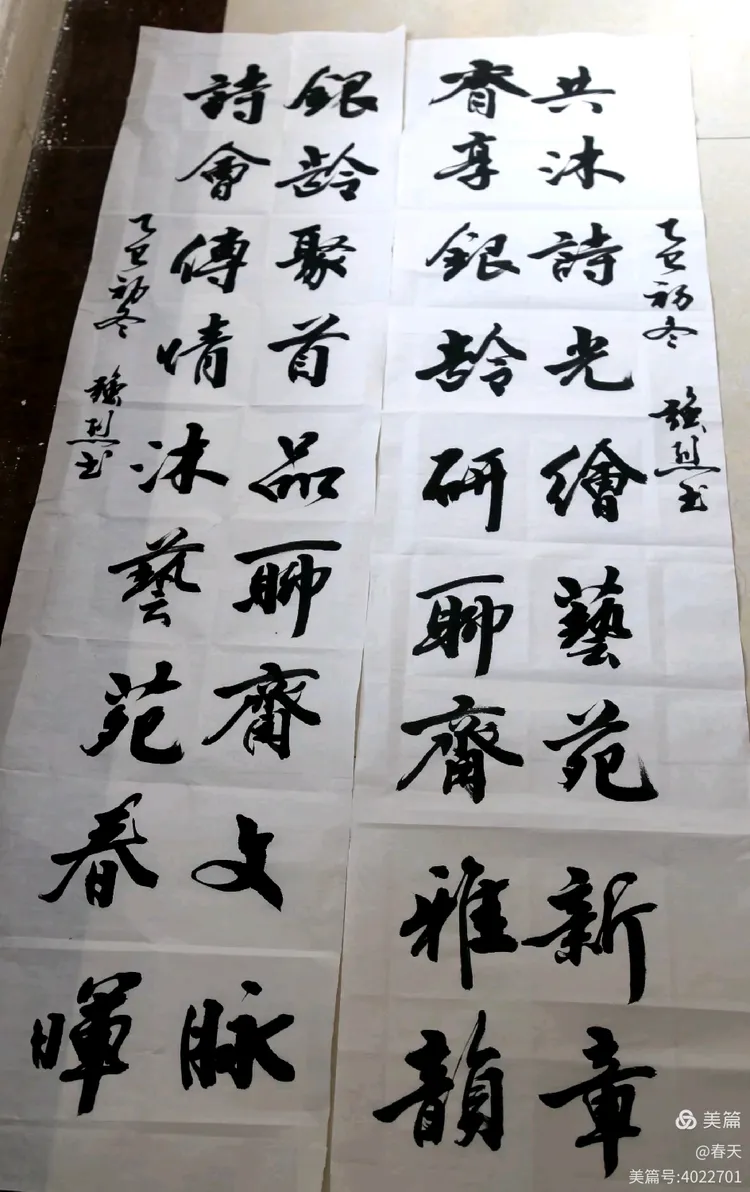 乙巳初冬 烈书
共沐詩光繪藝苑新章
齊享銀齡研聊齋雅韻
銀齡聚首品聊齋文脉
詩會傳情沐藝苑春暉
乙巳初冬 烈书
美篇
@春天
美篇号:4022701